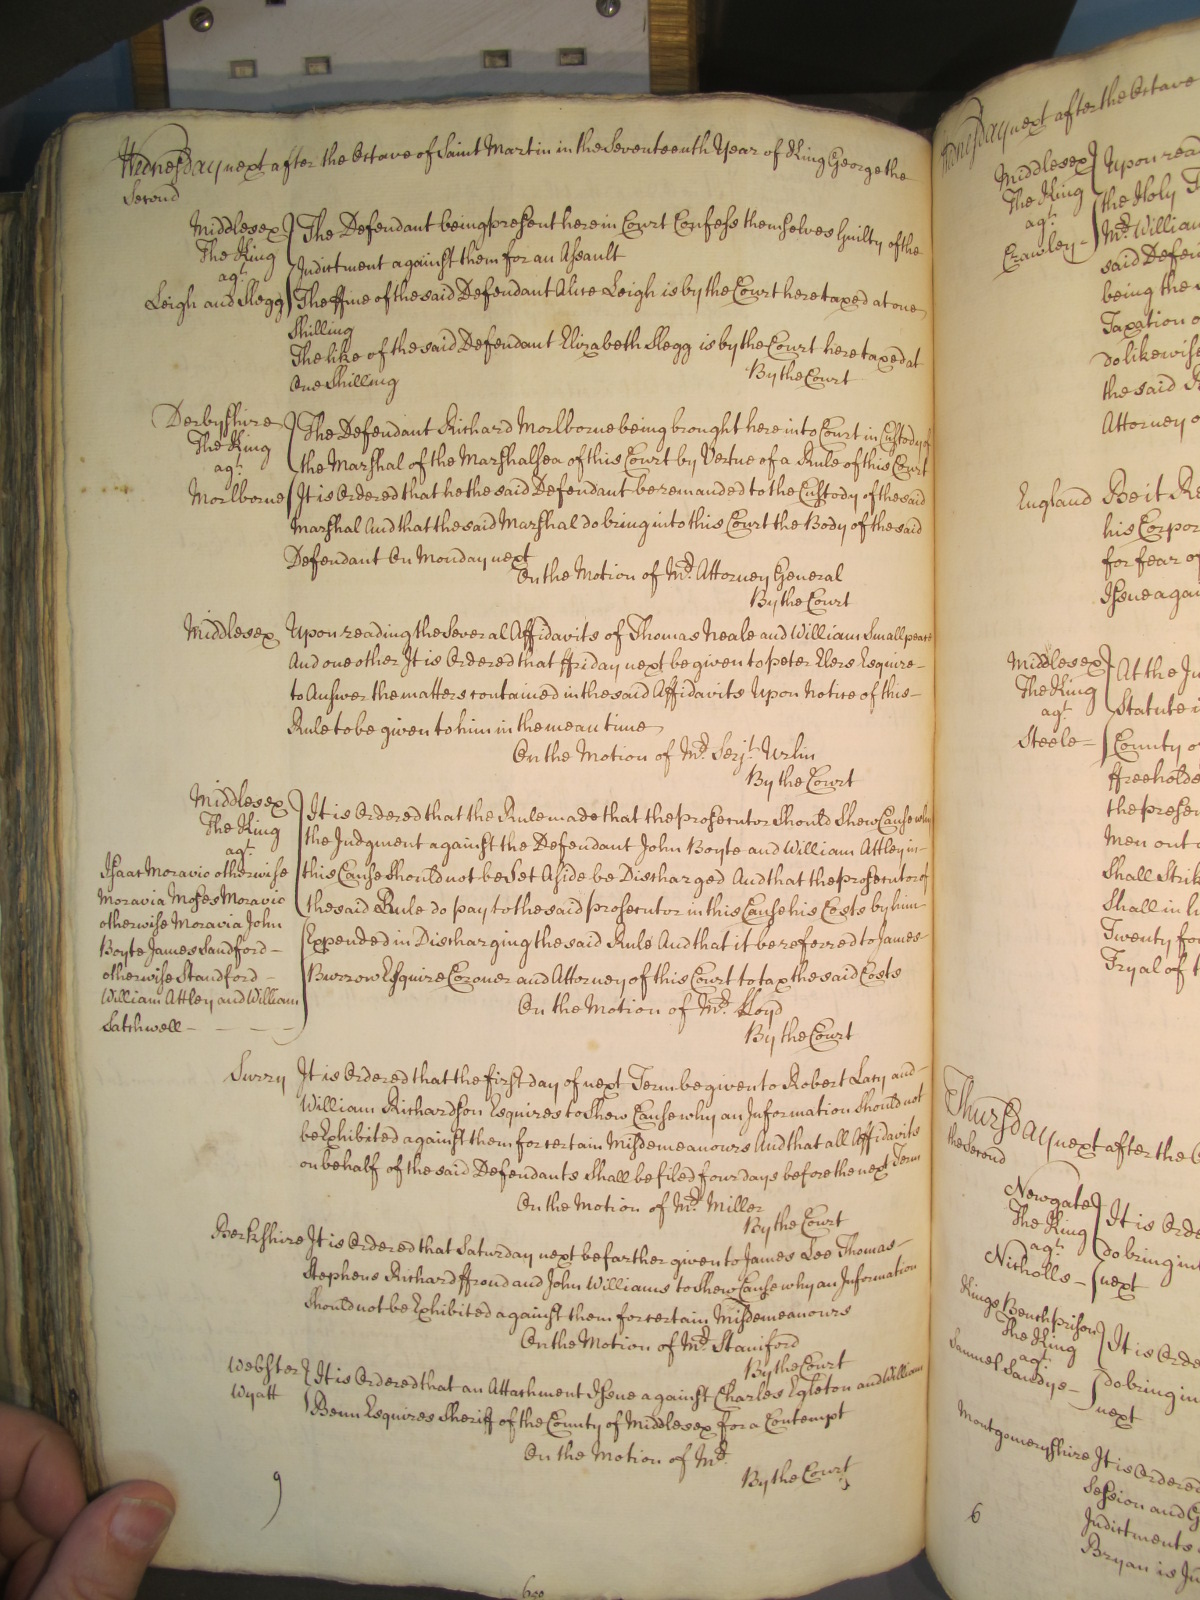 Wednesday next after the Octave of Saint Martin in the Seventeenth Year of King George the
Second
Middlesex
The King
agt.
Leigh and Slegg
The Defendant being present here in Court Confess themselves Guilty of the
Indictment against them for an Assault
The ffine of the said Defendant Alice Leigh is by the Court here taxed at one
Shilling
The like of the said Defendant Elizabeth Slegg is by the Court here taxed at
One Shilling
By the Court
Derbyshire
The King
agt.
Morlborne
The Defendant Richard Morlborne being brought here into Court in Custody of
the Marshal of the Marshalsea of this Court by Vertue of a Rule of this Court
It is Ordered that he the said Defendant be remanded to the Custody of the said
Marshal And that the said Marshal do bring into this Court the Body of the said
Defendant On Monday next
On the Motion of Mr. Attorney General
By the Court
Middlesex
Upon reading the Several Affidavits of Thomas Neale and William Smallpeace
And one other It is Ordered that ffriday next be given to peter Elers Esquire
to Answer the matters contained in the said Affidavits Upon Notice of this
Rule to be given to him in the mean time
On the Motion of Mr. Serjt. Urlin
By the Court
Middlesex
The King
agt.
Isaac Moravic otherwise
Moravia Moses Moravic
otherwise Moravia John
Boyte James Sandford
otherwise Standford
William Attley and William
Satchwell
It is Ordered that the Rule made that the prosecutor Should Shew Cause why
the Judgment against the Defendant John Boyte and William Attley in
this Cause Should not be Set Aside be Discharged And that the prosecutor of
the said Rule do pay to the said prosecutor in this Cause his Costs by him
Expended in Discharging the said Rule And that it be referred to James
Burrow Esquire Coroner and Attorney of this Court to tax the said Costs
On the Motion of Mr. Lloyd
By the Court
Surry
It is Ordered that the first day of next Term be given to Robert Lacy and
William Richardson Esquires to Shew Cause why an Information Should not
be Exhibited against them for certain Misdemeanours And that all Affidavits
on behalf of the said Defendants Shall be filed four days before the next Term
On the Motion of Mr. Miller
By the Court
Berkshire
It is Ordered that Saturday next be farther given to James Lee Thomas
Stephens Richard ffroud and John Williams to Shew Cause why an Information
Should not be Exhibited against them for certain Misdemeanours
On the Motion of Mr. Staniford
By the Court
Webster
Wyatt
It is Ordered that an Attachment Issue against Charles Egleton and William
Benn Esquires Sheriff of the County of Middlesex for a Contempt
On the Motion of Mr.
By the Court
9
next after the Octave
Middlesex
The King
agt.
Crawley
Upon rea
the Holy T
Mr. William
said Defen
being the
Taxation o
do likewise
the said
Attorney o
England
Be it Re
his Corpor
for fear of
Issue again
Middlesex
The King
agt.
Steele
At the In
Statute i
County o
ffreeholde
the presen
Men out o
Shall Strik
Shall in l
Twenty fo
Tryal of t
Thursday next after the O
the Second
Newgate
The King
agt.
Nicholls
It is Orde
do bring int
next
Kings Bench prison
The King
agt.
Samuel Sandys
It is Orde
do bring in
next
Montgomeryshire
It is Ordered
Session and G
Indictments
Bryan is In
6